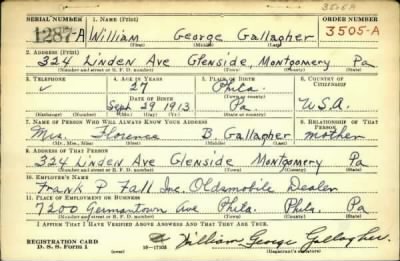 3505A
SERIAL NUMBER 1. NAME (Print) ORDER NUMBER
1287-A William George Gallagher 3505-A
(First) (Middle) (Last)
2. ADDRESS (Print)
324 Linden Ave Glenside, Montgomery Pa
(Number and street or R. F. D. number) (Town) (County) (State)
3. TELEPHONE 4. AGE IN YEARS 5. PLACE OF BIRTH 6. COUNTRY OF CITIZENSHIP
27 Phila.
DATE OF BIRTH (Town or county)
Sept 29 1913 Pa U.S.A.
(Mo.) (Day) (Yr.) (State or country)
7. NAME OF PERSON WHO WILL ALWAYS KNOW YOUR ADDRESS 8. RELATIONSHIP OF THAT PERSON
Mrs. Florence B. Gallagher mother
(Mr., Mrs., Miss) (First) (Middle) (Last)
9. ADDRESS OF THAT PERSON
324 Linden Ave Glenside Montgomery Pa
(Number and street or R. F. D. number) (Town) (County) (State)
10. EMPLOYER'S NAME
Frank P Fall Inc. Oldsmobile Dealer
11. PLACE OF EMPLOYMENT OR BUSINESS
7200 Germantown Ave Phila. Phila. Pa
(Number and street or R. F. D. number) (Town) (County) (State)
I AFFIRM THAT I HAVE VERIFIED ABOVE ANSWERS AND THAT THEY ARE TRUE.
REGISTRATION CARD
D. S. S. Form 1 16-17105 William George Gallagher
(Registrant's signature)